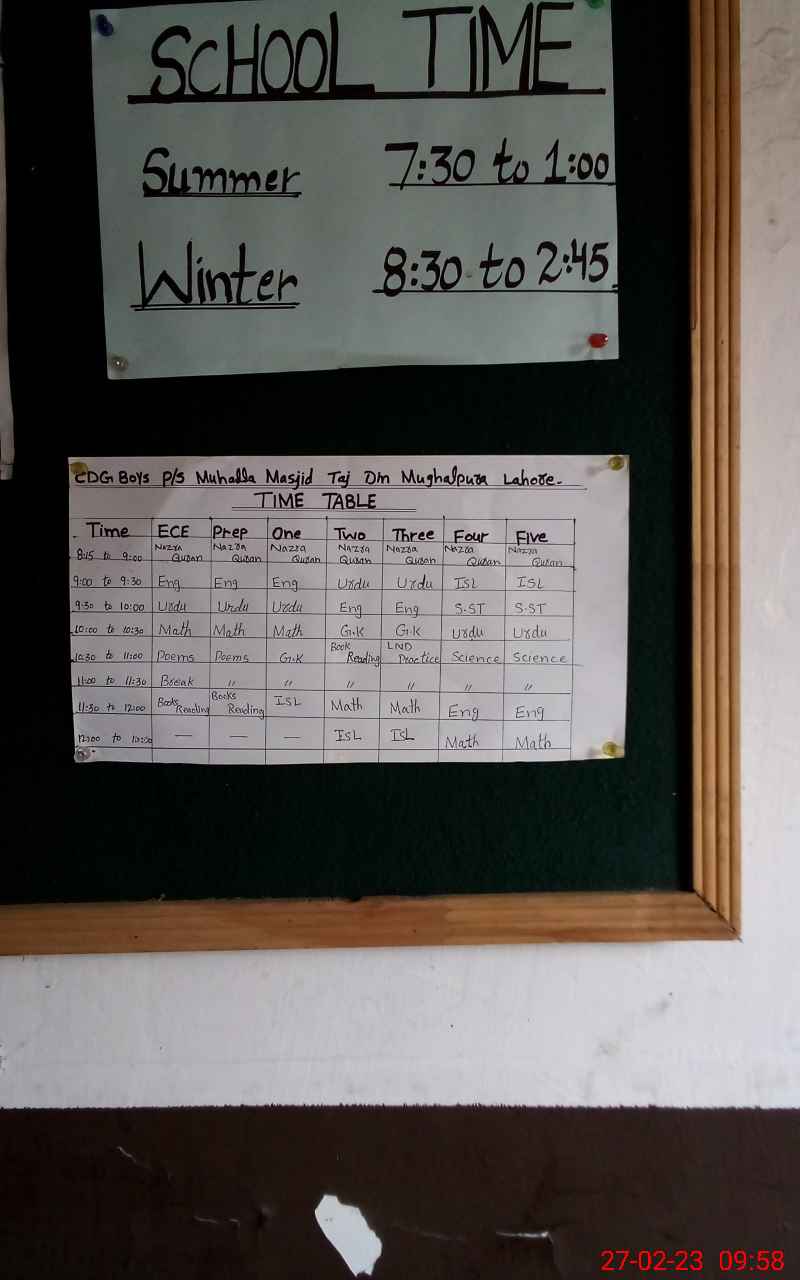 SCHOOL TIME
Summer 7:30 to 1:00
Winter 8:30 to 2:45
CDG Boys P/S Muhalla Masjid Taj Din Mughalpura Lahore.
TIME TABLE
Time ECE Prep One Two Three Four Five
8:15 to 9:00 Nazra Quran Nazra Quran Nazra Quran Nazra Quran Nazra Quran Nazra Quran Nazra Quran
9:00 to 9:30 Eng Eng Eng Urdu Urdu ISL ISL
9:30 to 10:00 Urdu Urdu Urdu Eng Eng S.ST S.ST
10:00 to 10:30 Math Math Math G.K G.K Urdu Urdu
10:30 to 11:00 Poems Poems G.K Book Reading LND Practice Science Science
11:00 to 11:30 Break " " " " " "
11:30 to 12:00 Books Reading Books Reading ISL Math Math Eng Eng
12:00 to — — — ISL ISL Math Math
27-02-23 09:58